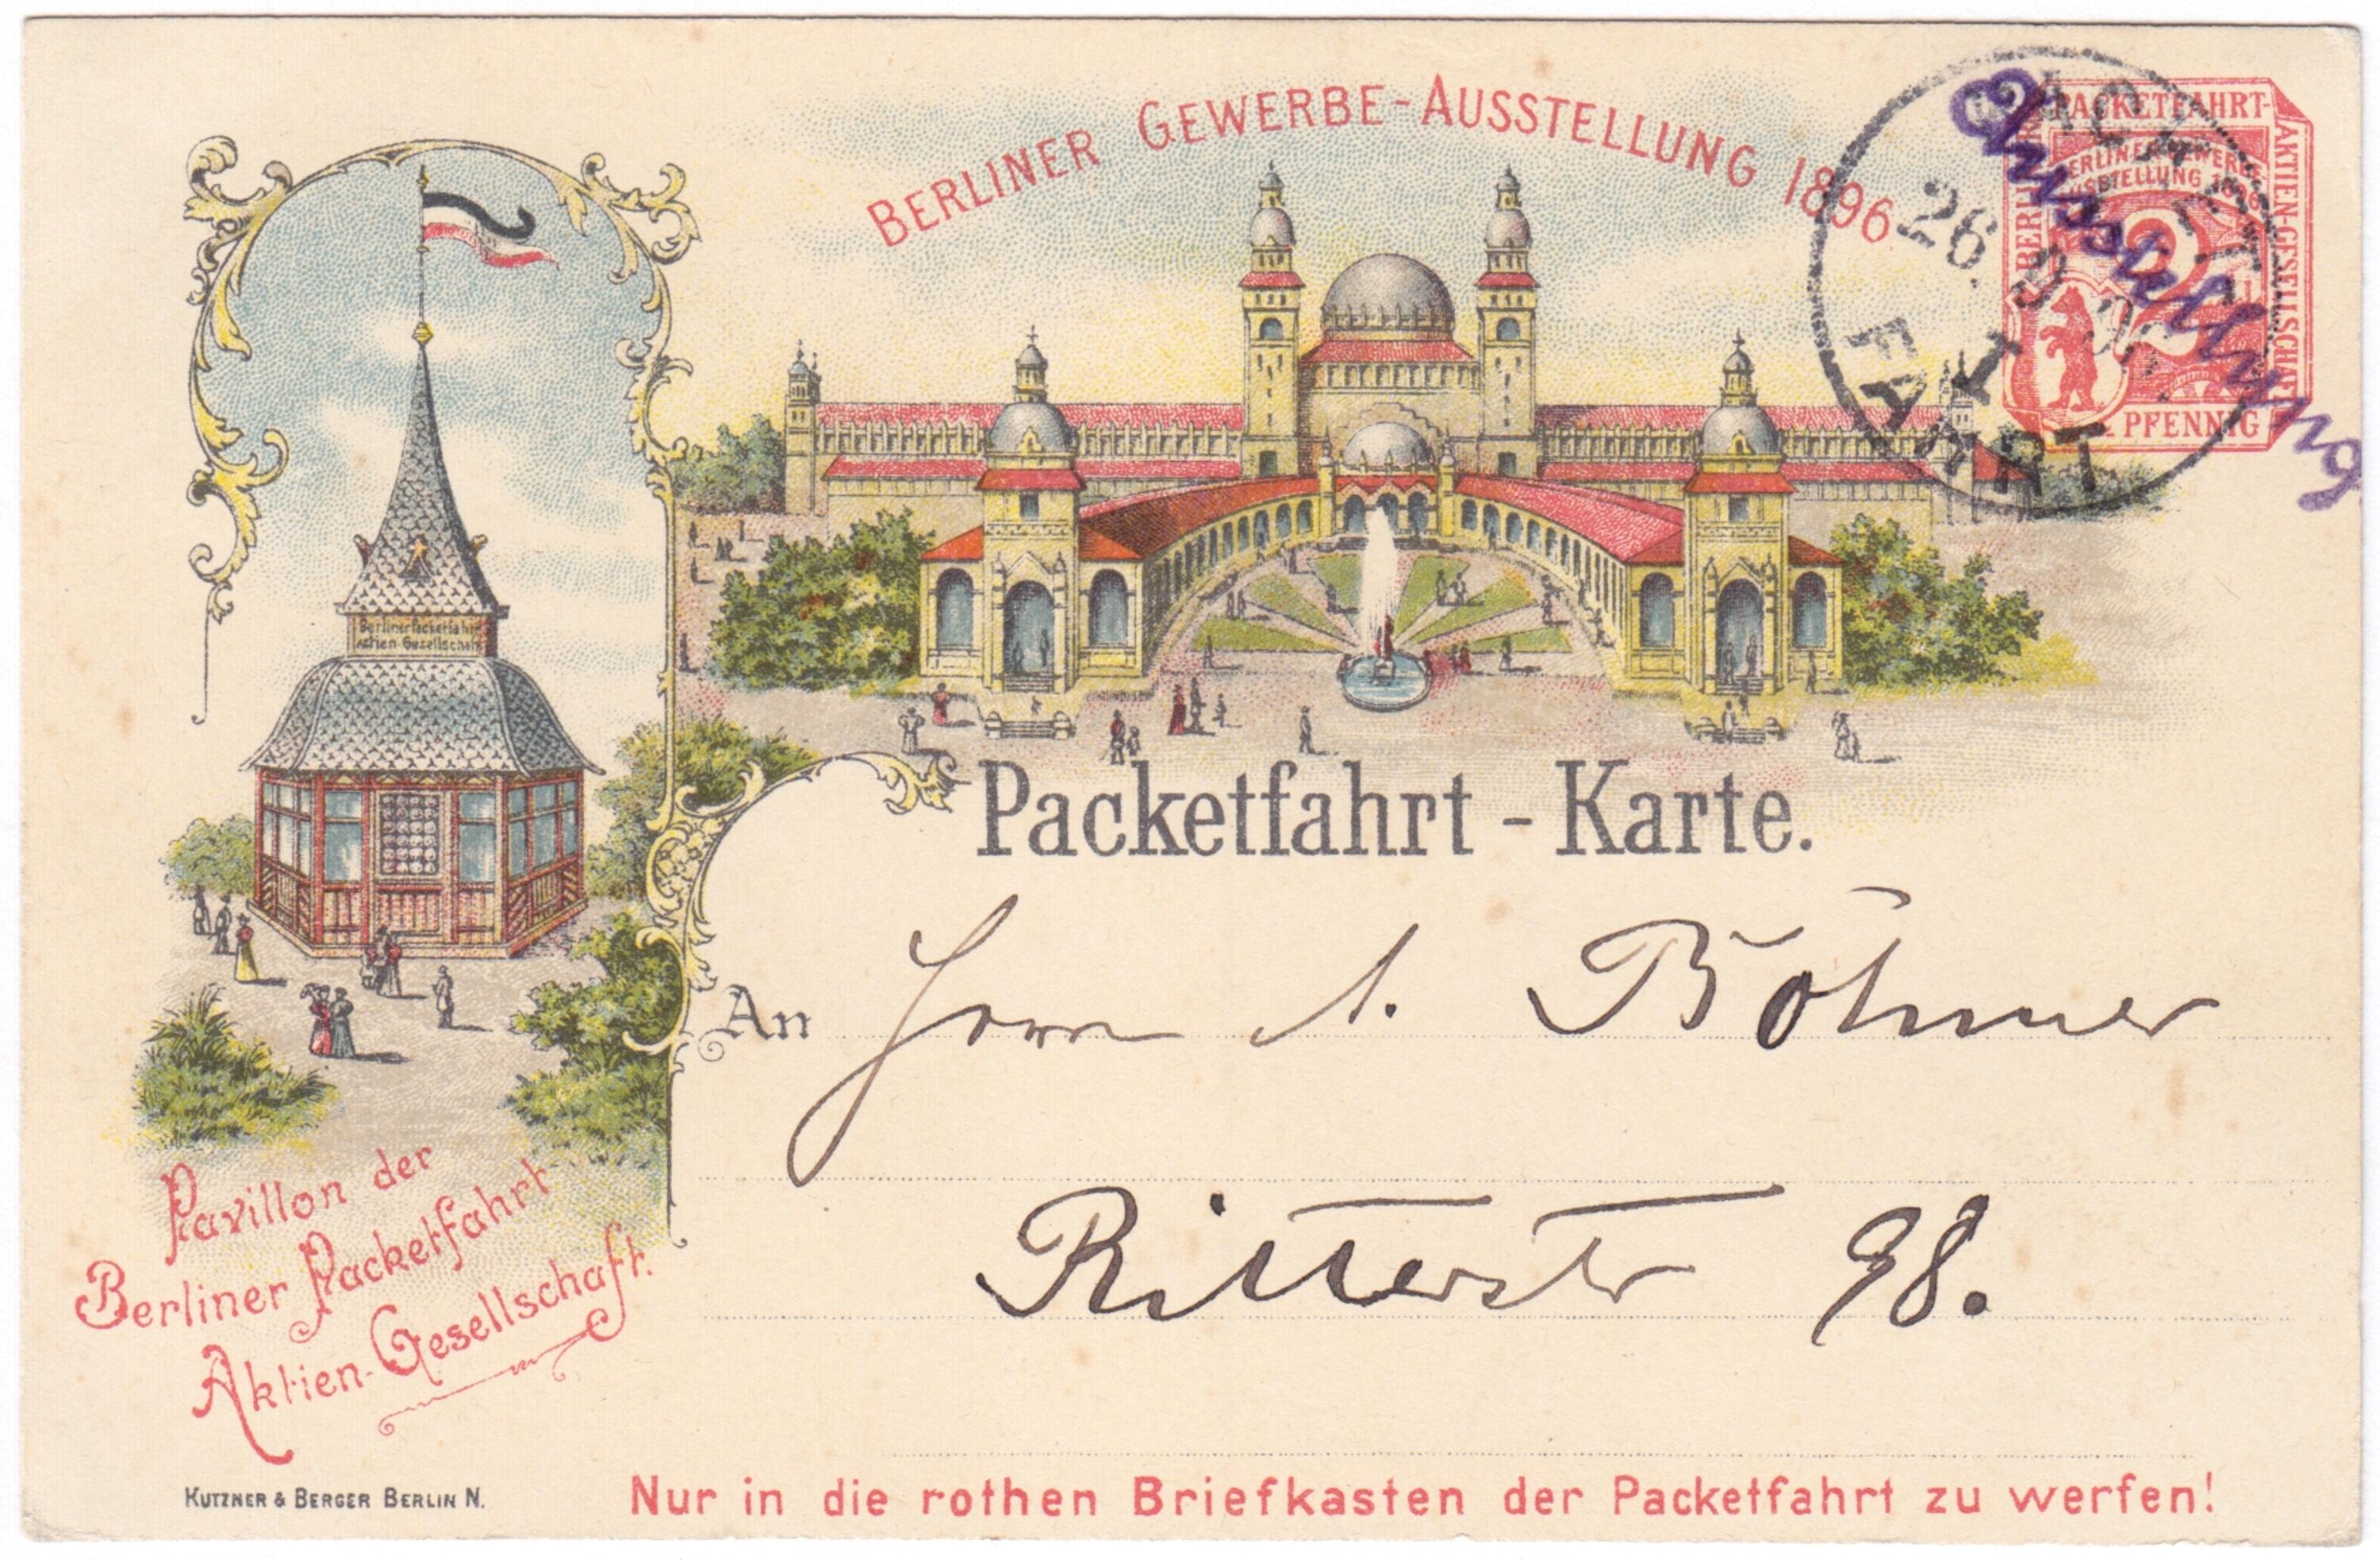 BERLINER GEWERBE-AUSSTELLUNG 1896.
PACKETFAHRT-
AKTIEN-GESELLSCHAFT
BERLINER GEWERBE
AUSSTELLUNG 1896
2
PFENNIG
PACKET
26. 9. 96.
I
FAHRT
Ausstellung
Berliner Packetfahrt
Aktien-Gesellschaft
Packetfahrt-Karte.
An Herrn A. Böhmer
Ritterstr 98.
Pavillon der
Berliner Packetfahrt
Aktien-Gesellschaft.
KUTZNER & BERGER BERLIN N.
Nur in die rothen Briefkasten der Packetfahrt zu werfen!